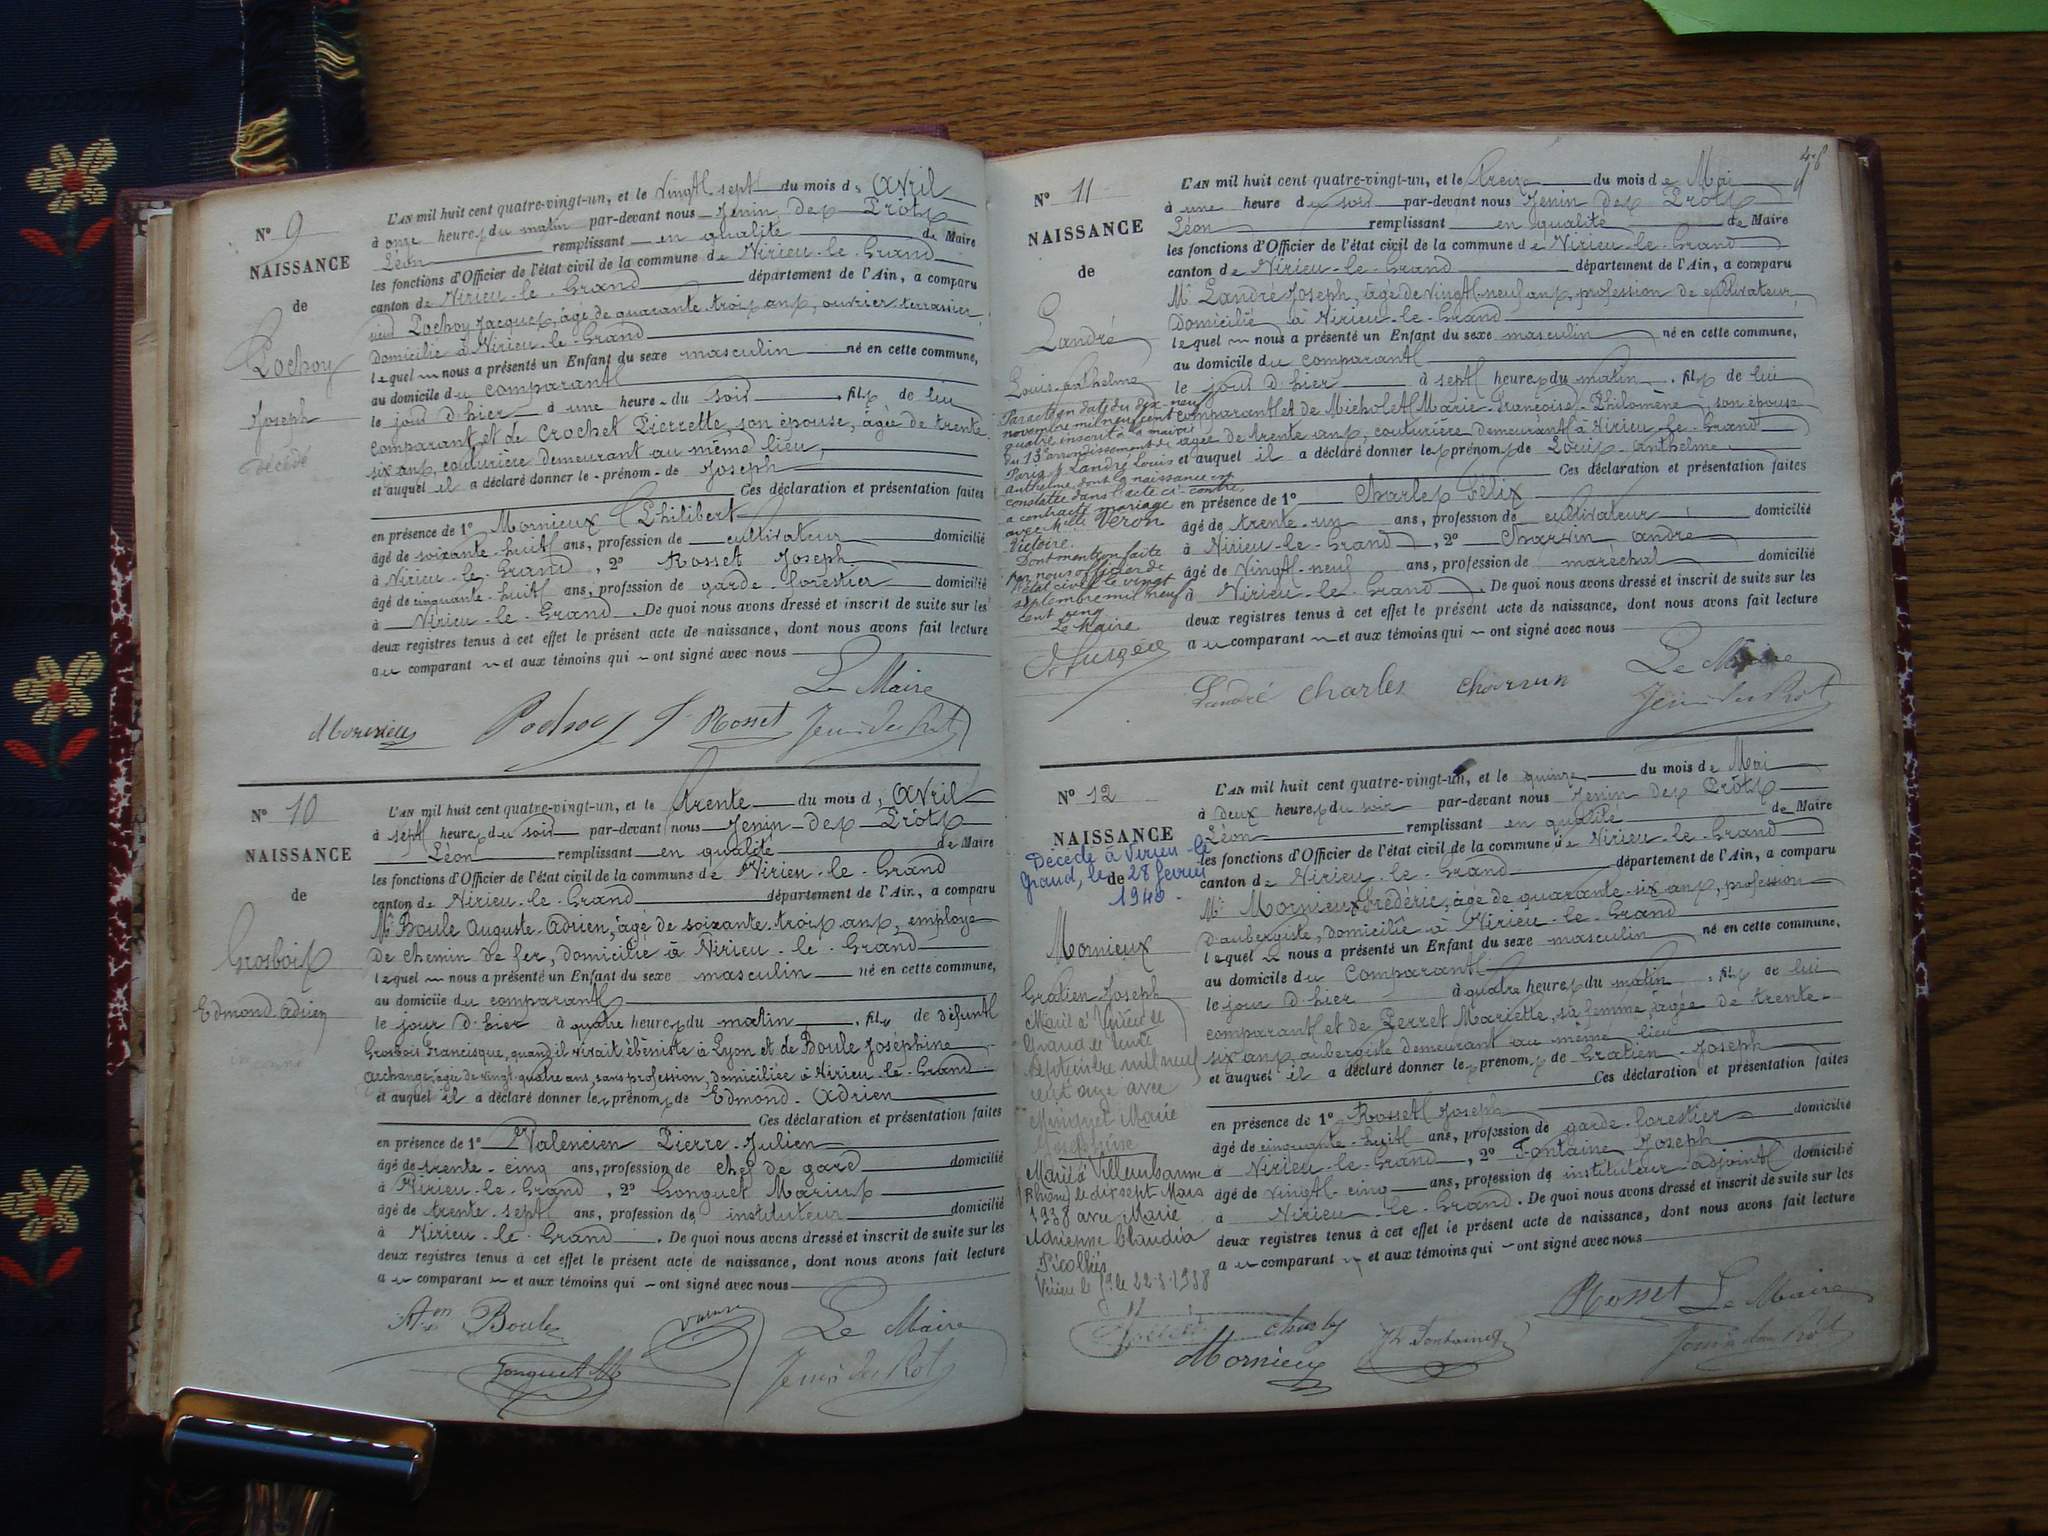 Nº 9
NAISSANCE
de
Pochoy
Joseph
décédé
L'AN mil huit cent quatre-vingt-un, et le vingt sept du mois d' Avril
à onze heures du matin par-devant nous Jenin des Prôts
Léon remplissant en qualité de Maire
les fonctions d'Officier de l'état civil de la commune de Virieu-le-Grand
canton de Virieu-le-Grand département de l'Ain, a comparu
sieur Pochoy Jacques, âgé de quarante-trois ans, ouvrier terrassier,
domicilié à Virieu-le-Grand
lequel nous a présenté un Enfant du sexe masculin né en cette commune,
au domicile du comparant
le jour d'hier à une heure du soir, fils de lui
comparant et de Crochet Pierrette, son épouse, âgée de trente-
six ans, couturière demeurant au même lieu,
et auquel il a déclaré donner le prénom de Joseph
Ces déclaration et présentation faites
en présence de 1º Mornieux Philibert
âgé de soixante-huit ans, profession de cultivateur domicilié
à Virieu-le-Grand, 2º Rosset Joseph
âgé de cinquante-huit ans, profession de garde-forestier domicilié
à Virieu-le-Grand. De quoi nous avons dressé et inscrit de suite sur les
deux registres tenus à cet effet le présent acte de naissance, dont nous avons fait lecture
au comparant et aux témoins qui ont signé avec nous
Le Maire
Mornieux Pochoy J Rosset Jenin des Prôts
Nº 10
NAISSANCE
de
Grosbois
Edmond Adrien
L'AN mil huit cent quatre-vingt-un, et le trente du mois d' Avril
à sept heures du soir par-devant nous Jenin des Prôts
Léon remplissant en qualité de Maire
les fonctions d'Officier de l'état civil de la commune de Virieu-le-Grand
canton de Virieu-le-Grand département de l'Ain, a comparu
Mr Boule Auguste-Adrien, âgé de soixante-trois ans, employé
de chemin de fer, domicilié à Virieu-le-Grand
lequel nous a présenté un Enfant du sexe masculin né en cette commune,
au domicile du comparant
le jour d'hier à quatre heures du matin, fils de défunt
Grosbois Francisque, quand il vivait ébéniste à Lyon et de Boule Joséphine
Archange, âgée de vingt-quatre ans, sans profession, domiciliée à Virieu-le-Grand
et auquel il a déclaré donner les prénoms de Edmond-Adrien
Ces déclaration et présentation faites
en présence de 1º Valencien Pierre-Julien
âgé de trente-cinq ans, profession de chef de gare domicilié
à Virieu-le-Grand, 2º Gonguet Marius
âgé de trente-sept ans, profession de instituteur domicilié
à Virieu-le-Grand. De quoi nous avons dressé et inscrit de suite sur les
deux registres tenus à cet effet le présent acte de naissance, dont nous avons fait lecture
au comparant et aux témoins qui ont signé avec nous
Boule Le Maire
Gonguet M Jenin des Prôts
Nº 11
NAISSANCE
de
Landré
Louis-Anthelme
Par acte en date du dix-neuf
novembre mil neuf cent
quatre inscrit à la mairie
du 13e arrondissement de
Paris, Landré Louis
Anthelme dont la naissance est
constatée dans l'acte ci-contre,
a contracté mariage
avec Mlle Veron
Victoire.
Dont mention faite
par nous officier de
l'état civil le vingt
septembre mil neuf
cent cinq
Le Maire
L'AN mil huit cent quatre-vingt-un, et le treize du mois de Mai
à une heure du soir par-devant nous Jenin des Prôts
Léon remplissant en qualité de Maire
les fonctions d'Officier de l'état civil de la commune de Virieu-le-Grand
canton de Virieu-le-Grand département de l'Ain, a comparu
Mr Landré Joseph, âgé de vingt-neuf ans, profession de cultivateur
domicilié à Virieu-le-Grand
lequel nous a présenté un Enfant du sexe masculin né en cette commune,
au domicile du comparant
le jour d'hier à sept heures du matin, fils de lui
comparant et de Micholet Marie-Françoise-Philomène, son épouse
âgée de trente ans, couturière demeurant à Virieu-le-Grand
et auquel il a déclaré donner les prénoms de Louis-Anthelme
Ces déclaration et présentation faites
en présence de 1º Charles Félix
âgé de trente-un ans, profession de cultivateur domicilié
à Virieu-le-Grand, 2º Charvin André
âgé de vingt-neuf ans, profession de maréchal domicilié
à Virieu-le-Grand. De quoi nous avons dressé et inscrit de suite sur les
deux registres tenus à cet effet le présent acte de naissance, dont nous avons fait lecture
au comparant et aux témoins qui ont signé avec nous
Le Maire
Landré Charles Charvin Jenin des Prôts
Nº 12
NAISSANCE
de
Décédé à Virieu-le-
Grand, le 28 février
1940.
Mornieux
Gratien Joseph
Marié à Virieu le
Grand le
septembre mil neuf
cent onze avec
Marie
Joséphine
Marié à Villeurbanne
(Rhône) le dix sept Mars
1938 avec Marie
Adrienne Claudia
Virieu le Gd le 22-3-1938
L'AN mil huit cent quatre-vingt-un, et le quinze du mois de Mai
à deux heures du soir par-devant nous Jenin des Prôts
Léon remplissant en qualité de Maire
les fonctions d'Officier de l'état civil de la commune de Virieu-le-Grand
canton de Virieu-le-Grand département de l'Ain, a comparu
Mr Mornieux Frédéric, âgé de quarante-six ans, profession
d'aubergiste, domicilié à Virieu-le-Grand
lequel nous a présenté un Enfant du sexe masculin né en cette commune,
au domicile du comparant
le jour d'hier à quatre heures du matin, fils de lui
comparant et de Perret Mariette, sa femme, âgée de trente-
six ans, aubergiste demeurant au même lieu
et auquel il a déclaré donner les prénoms de Gratien-Joseph
Ces déclaration et présentation faites
en présence de 1º Rosset Joseph
âgé de cinquante-huit ans, profession de garde-forestier domicilié
à Virieu-le-Grand, 2º Fontaine Joseph
âgé de vingt-cinq ans, profession de instituteur adjoint domicilié
à Virieu-le-Grand. De quoi nous avons dressé et inscrit de suite sur les
deux registres tenus à cet effet le présent acte de naissance, dont nous avons fait lecture
au comparant et aux témoins qui ont signé avec nous
Rosset Le Maire
Mornieux Jh Fontaine Jenin des Prôts